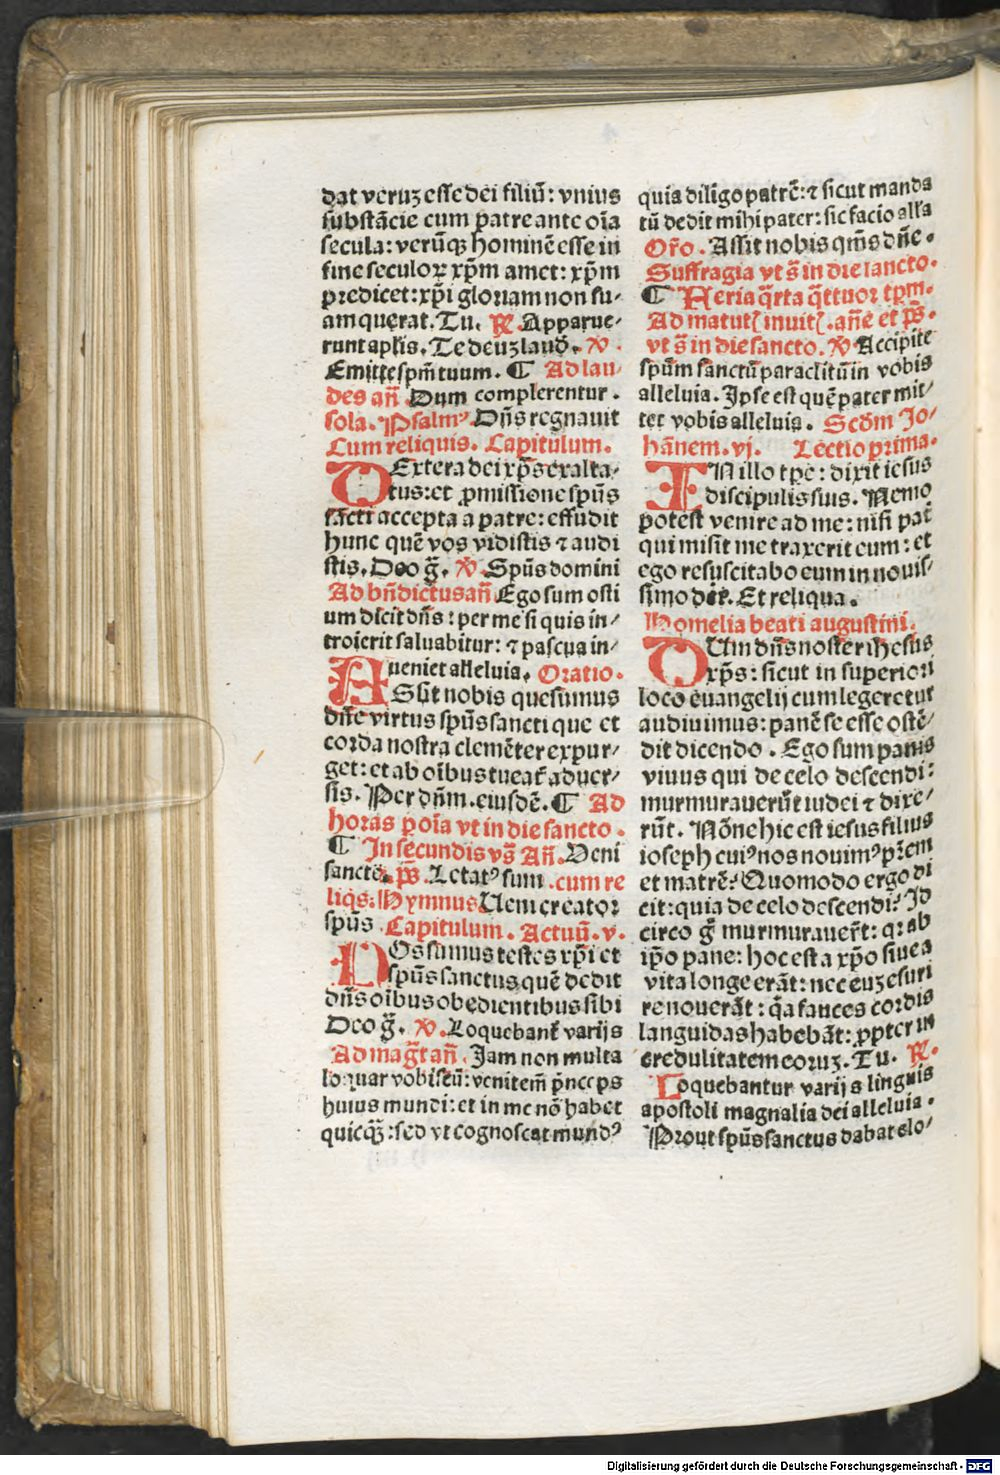 dat veruȝ esse dei filiū: vnius
substācie cum patre ante oīa
secula: verūqȝ hominē esse in
fine seculoꝝ xp̄m amet: xp̄m
predicet: xp̄i gloriam non su⸗
am querat. Tu. ℟. Apparue⸗
runt apl̄is. Te deuȝ laudꝰ. ℣.
Emitte spm̄ tuum. ¶ Ad lau⸗
des an̄ Dum complerentur.
sola. Psalmꝰ Dn̄s regnauit
Cum reliquis. Capitulum.
DExtera dei xp̄s exalta⸗
tus: et ꝓmissione spūs
sācti accepta a patre: effudit
hunc quē vos vidistis ⁊ audi
stis. Deo g̃. ℣. Spūs domini
Ad bn̄dictus an̄ Ego sum osti
um dicit dn̄s: per me si quis in⸗
troierit saluabitur: ⁊ pascua in⸗
ueniet alleluia. Oratio.
ASsit nobis quesumus
dn̄e virtus spūs sancti que et
corda nostra clemēter expur⸗
get: et ab oībus tueat̄ aduer⸗
sis. Per dn̄m. eiusdē. ¶ Ad
horas ꝑ oīa vt in die sancto.
¶ In secundis vs̄ An̄. Veni
sancte. ps̄. Letatꝰ sum. cum re
liq̄s. Hymnus Ueni creator
spūs. Capitulum. Actuū. v.
NOs sumus testes xp̄i et
spūs sanctus quē dedit
dn̄s oībus obedientibus sibi
Deo g̃. ℣. Loquebant̄ varijs
Ad mag̃t an̄. Jam non multa
loquar vobiscū: venit em̄ p̄nceps
huius mundi: et in me nō habet
quicq̄ȝ: sed vt cognoscat mundꝰ
quia diligo patrē: ⁊ sicut manda
tū dedit mihi pater: sic facio all̄a
Or̄o. Assit nobis qm̄s dn̄e.
Suffragia vt s̄ in die sancto.
¶ Feria q̄rta q̄ttuor tꝑm.
Ad matut̄ inuit̄. an̄e et ps̄.
vt s̄ in die sancto. ℣ Accipite
spūm sanctū paraclitū in vobis
alleluia. Jpse est quē pater mit⸗
tet vobis alleluia. Scd̄m Jo⸗
hānem. vj. Lectio prima.
IN illo tp̄e: dixit iesus
discipulis suis. Nemo
potest venire ad me: nisi pat̄
qui misit me traxerit eum: et
ego resuscitabo eum in nouis⸗
simo die. Et reliqua.
Homelia beati augustini.
CUm dn̄s noster ihesus
xp̄s: sicut in superiori
loco euangelij cum legeretur
audiuimus: panē se esse ostē⸗
dit dicendo. Ego sum panis
viuus qui de celo descendi:
murmurauerūt iudei ⁊ dixe⸗
rūt. Nōne hic est iesus filius
ioseph cuiꝰ nos nouimꝰ pr̄em
et matrē? Quomodo ergo di
cit: quia de celo descendi? Jd
circo g̃ murmurauer̄t: qꝛ ab
ip̄o pane: hoc est a xp̄o siue a
vita longe erāt: nec euȝ esuri
re nouerāt: q̄a fauces cordis
languidas habebāt: ꝓpter in
credulitatem eoruȝ. Tu. ℟.
Loquebantur varijs linguis
apostoli magnalia dei alleluia.
Prout spūs sanctus dabat elo⸗
Digitalisierung gefördert durch die Deutsche Forschungsgemeinschaft - DFG